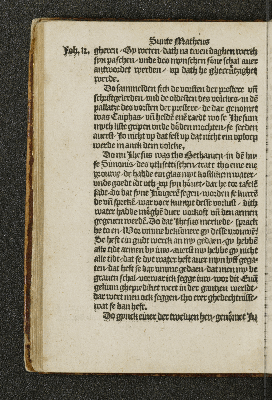 Sunte Matheus
Joh. 12.
gheven. Gy weten dath na twen daghen werth
syn paschen, unde des mynschen sone schal auer
antwordet werden, up dath he ghecrutzighet
werde.
Do sammelden sick de vorsten der prestere vn
schrifftgelerden, vnd de oldesten des volckes, in de
pallatze des vorsten der prestere, de dar genomet
was Cayphas, vn helde ene raedt wo se Jhesum
myth liste grepen vnde doden mochten, se seeden
auerst, Jo nicht up dat fest up dat nicht ein uplop
werde manck dem volcke.
Do nu Jhesus was tho Bethanien, in de huse
Simonis, des uthsettischen, trat tho em eine
vrouwe, de hadde ein glas myt kostliken water,
unde goet idt uth, up syn hovet, dar he tor tafel
sath, do dat syne Jungere segen, worden se
vn spreke, war toer kumpt desse vorlust, dith
water hadde mocht duer vorkofft vn den armen
gegeuen werde. Do dat Jhesus merkede, sprack
he to en, Wo
Se heft ein gudt werck an my gedaen, gy hebbe
alle tidt armen by iuw, auerst my hebbe gy nicht
alle tidt, dat se dyt water heft auer myn lyff gegaten,
dat heft se
grauen schal, vorwar ick segge iuw, wor dit Euangelium
ghepredicket wert in der gantzen werldt,
dar wert men ock seggen, tho erer ghedechtnisse,
wat se dan heft.
Do gynck einer der twelven hen, genomet Ju